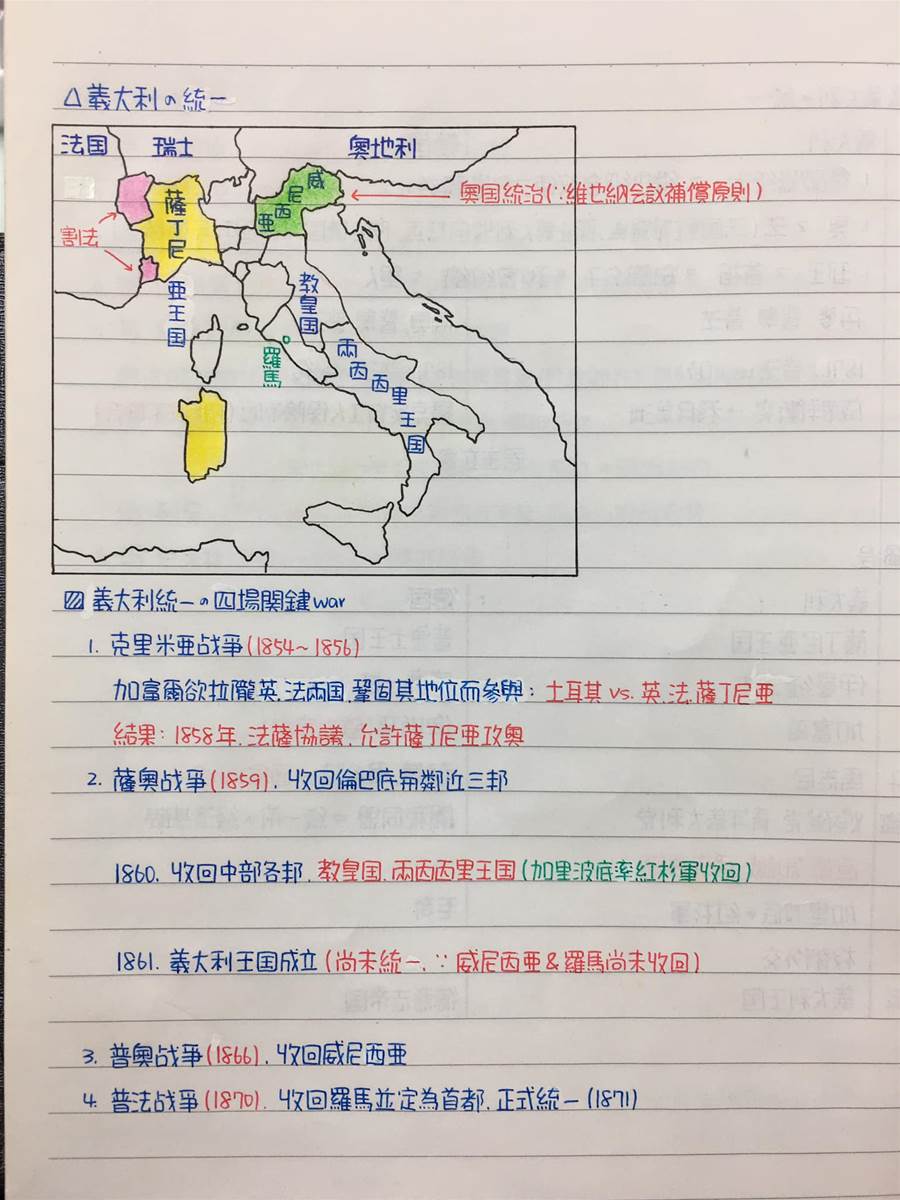 △義大利の統一
法国 瑞士 奧地利
威尼西亜
薩丁尼亜王国
奧国統治(∵維也納会議補償原則)
割法
教皇国
羅馬
兩西西里王国
▨ 義大利統一の四場関鍵war
1. 克里米亜战爭(1854~1856)
加富爾欲拉隴英.法兩国.鞏固其地位而參與: 土耳其 vs. 英.法.薩丁尼亜
結果: 1858年.法薩協議.允許薩丁尼亜攻奧
2. 薩奧战爭(1859). 收回倫巴底与鄰近三邦
1860. 收回中部各邦. 教皇国. 兩西西里王国(加里波底率紅杉軍收回)
1861. 義大利王国成立(尚未統一. ∵ 威尼西亜&羅馬尚未收回)
3. 普奧战爭(1866). 收回威尼西亜
4. 普法战爭(1870). 收回羅馬並定為首都.正式統一(1871)